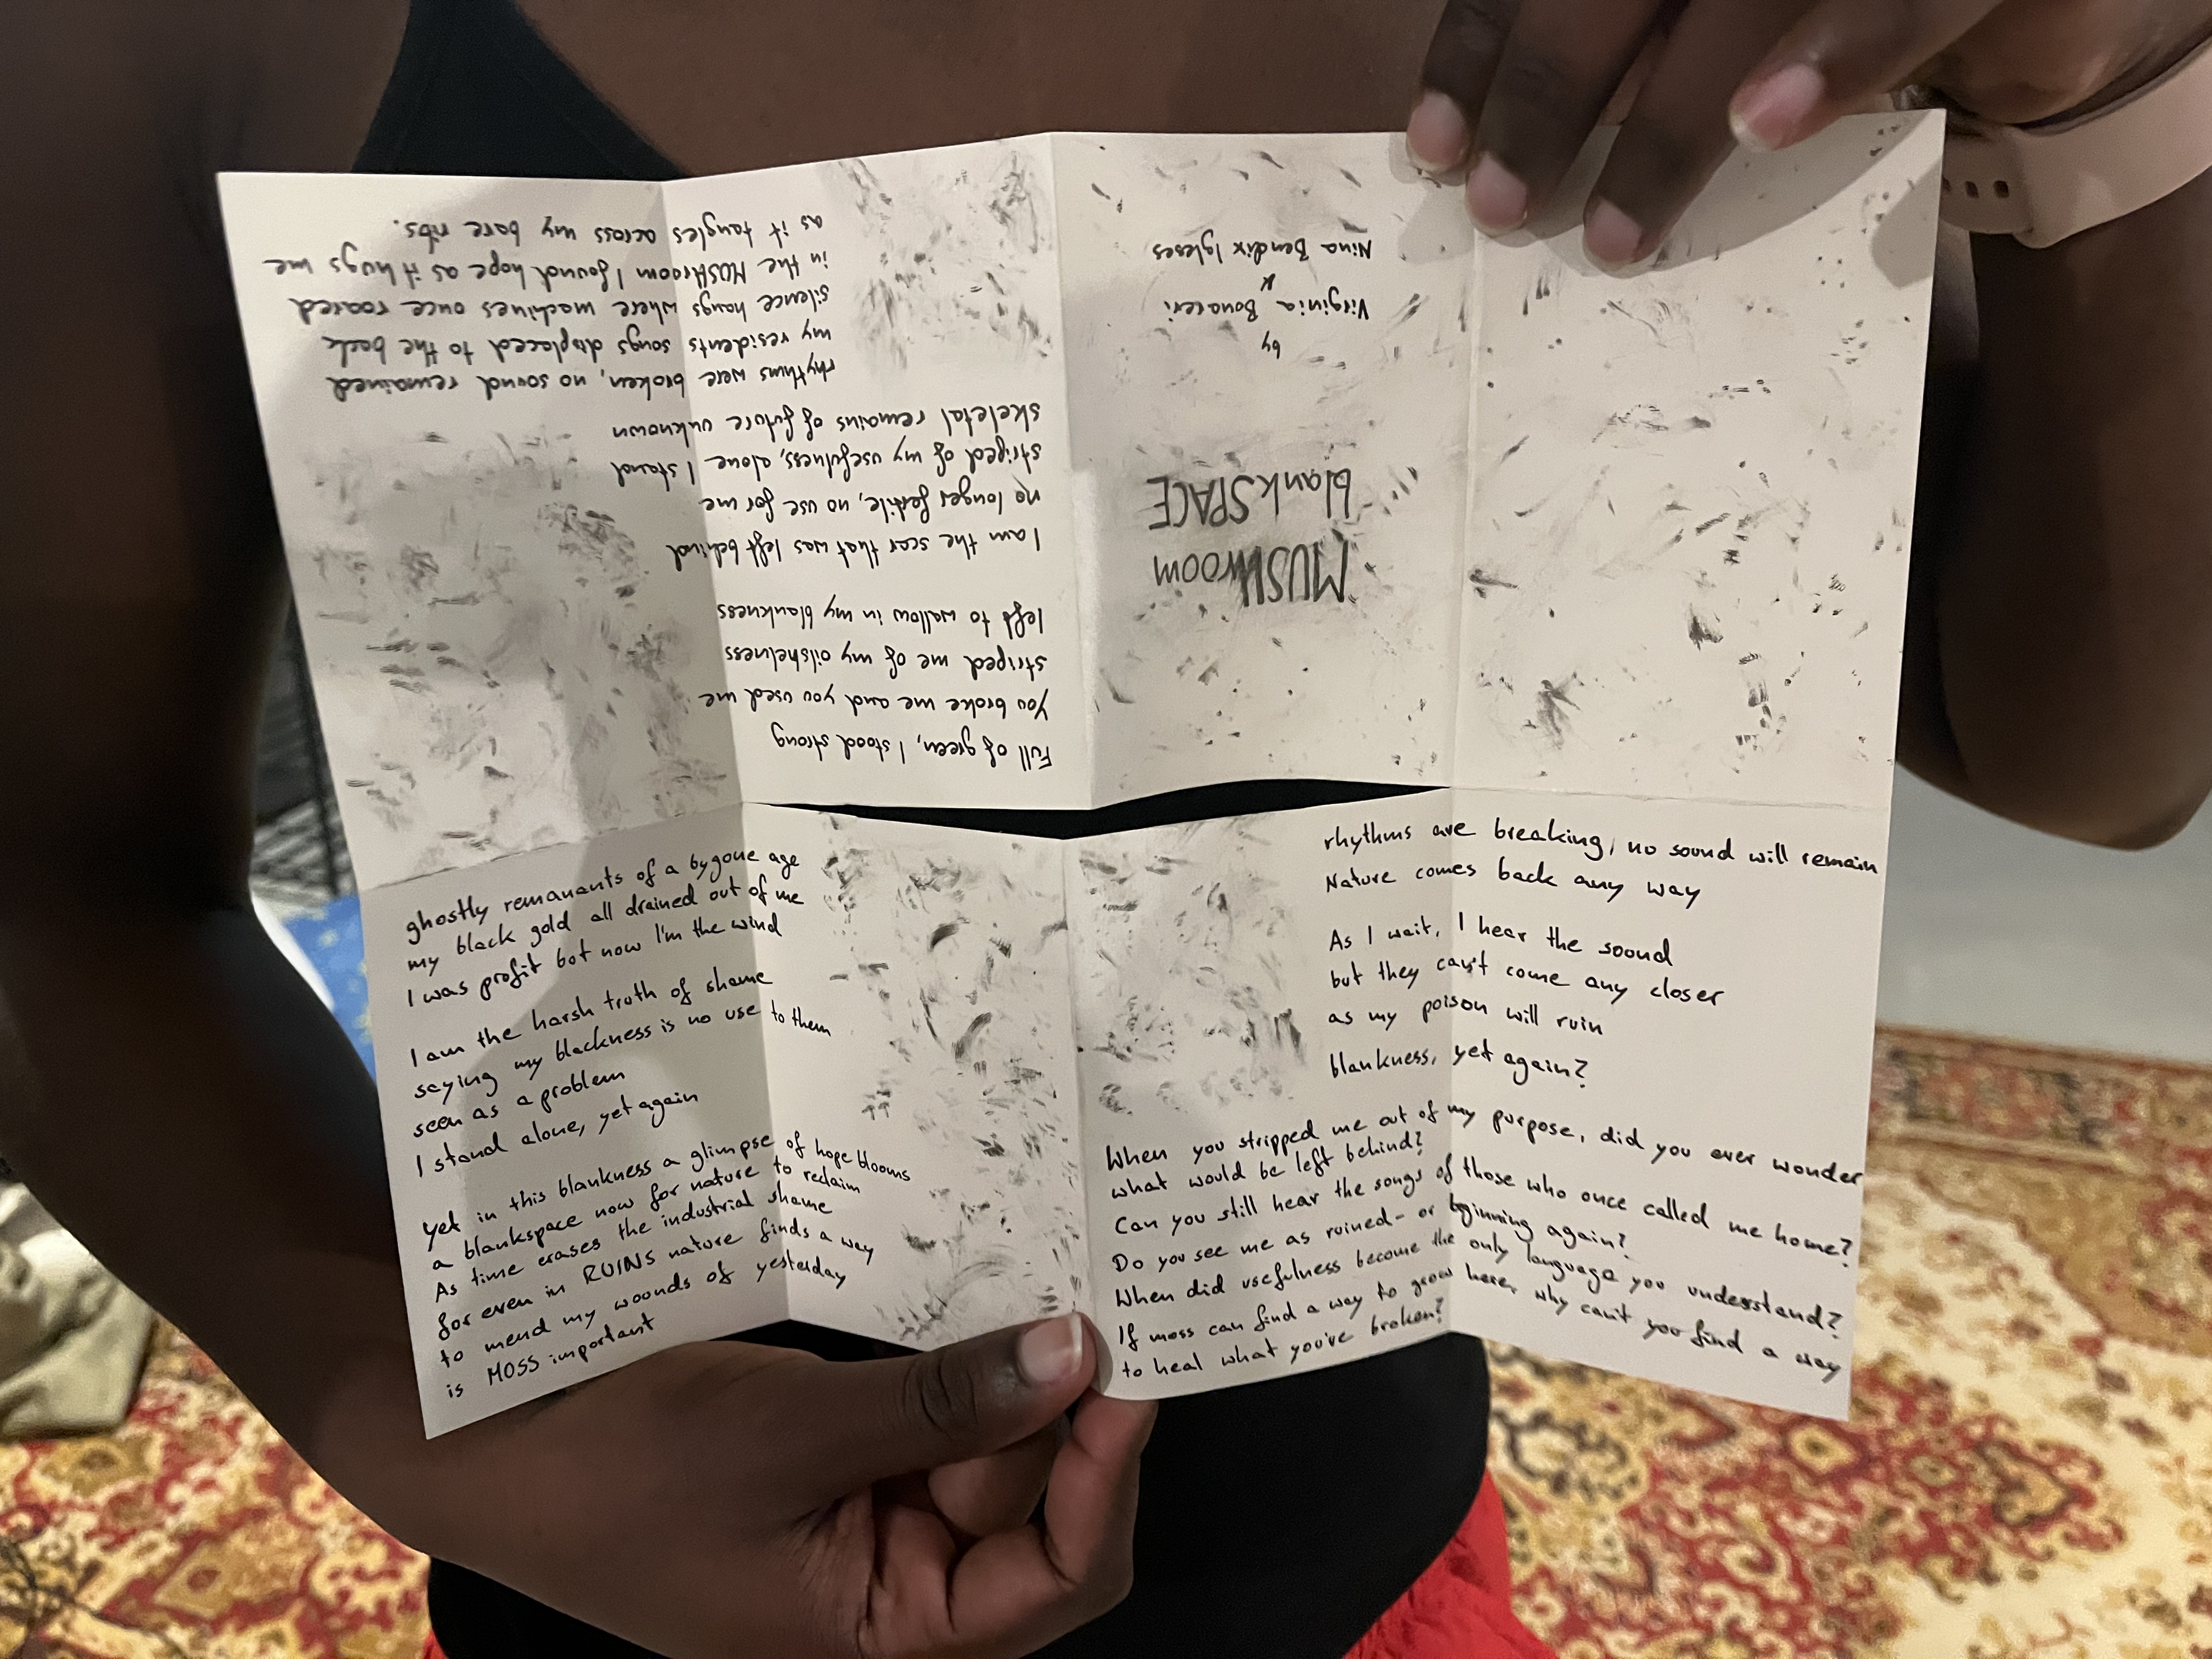 MUSHroom
blankSPACE
by
Virginia Bonaceri
&
Nina Bendix Igleses
Full of green, I stood strong
You broke me and you used me
striped me of my oilshelness
left to wallow in my blankness
I am the scar that was left behind
no longer fertile, no use for me
striped of my usefulness, alone I stand
skeletal remains of future unknown
rhythms were broken, no sound remained
my residents songs displaced to the back
silence hangs where machines once roared
in the MUSHroom I found hope as it hugs me
as it tangles across my bare ribs.
ghostly remanants of a bygone age
my black gold all drained out of me
I was profit but now I'm the wind
I am the harsh truth of shame
saying my blackness is no use to them
seen as a problem
I stand alone, yet again
yet in this blankness a glimpse of hope blooms
a blankspace now for nature to reclaim
As time erases the industrial shame
for even in RUINS nature finds a way
to mend my wounds of yesterday
is MOSS important
rhythms are breaking, no sound will remain
Nature comes back any way
As I wait, I hear the sound
but they can't come any closer
as my poison will ruin
blankness, yet again?
When you stripped me out of my purpose, did you ever wonder
what would be left behind?
Can you still hear the songs of those who once called me home?
Do you see me as ruined - or beginning again?
When did usefulness become the only language you understand?
If moss can find a way to grow here, why can't you find a way
to heal what you've broken?